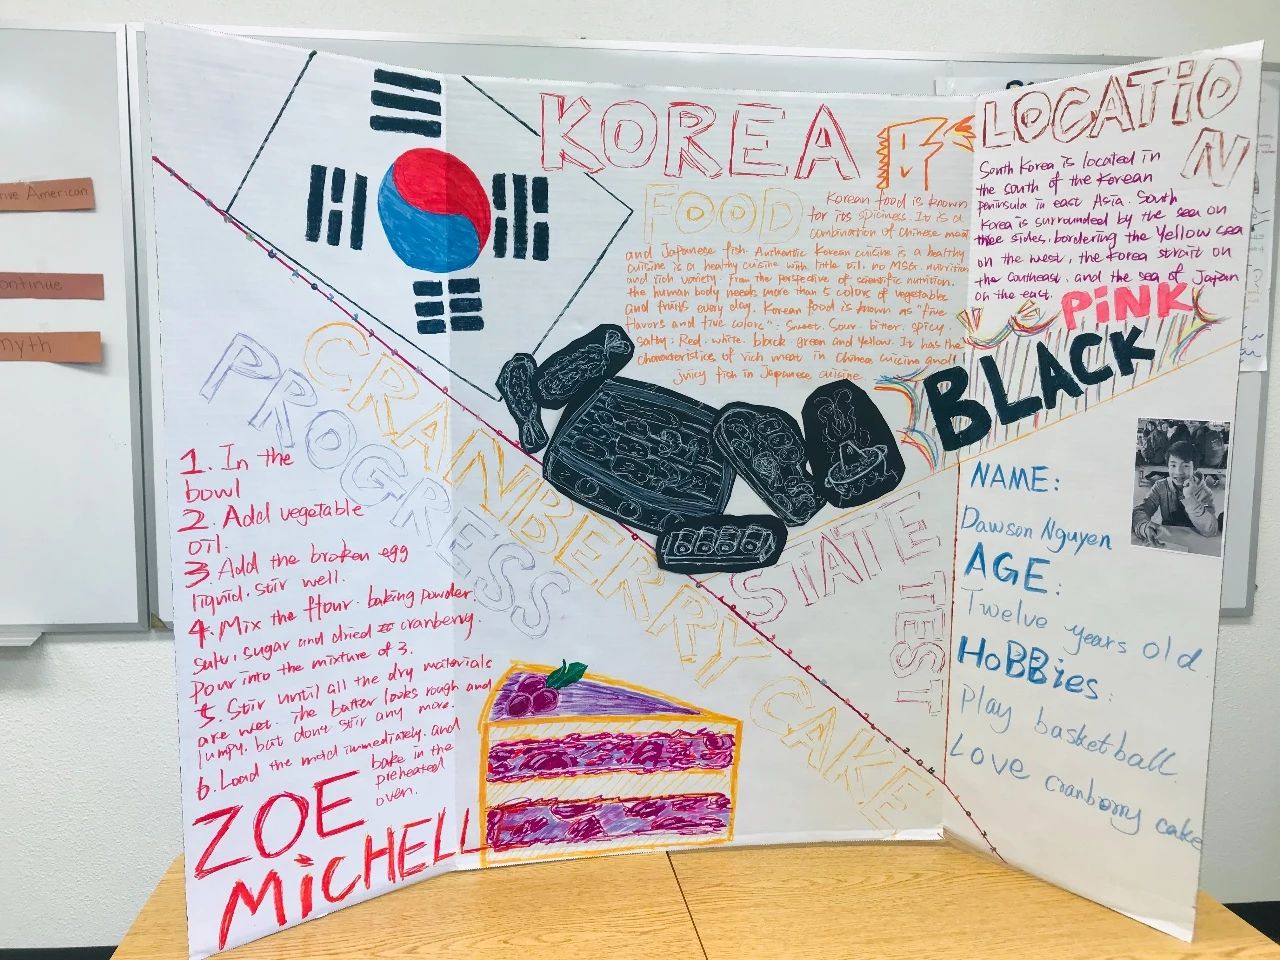 KOREA
FOOD
Korean food is known
for its spiciness. It is a
combination of Chinese meat
and Japanese fish. Authentic Korean cuisine is a healthy
cuisine is a healthy cuisine with little oil. no MSG. nutrition
and rich variety. From the perspective of scientific nutrition.
the human body needs more than 5 colors of vegetables
and fruits every day. Korean food is known as "five
flavors and five colors": Sweet. Sour. bitter. spicy.
salty: Red. white. black. green and Yellow. It has the
characteristics of rich meat in Chinese cuisine and
juicy fish in Japanese cuisine.
LOCATiO
N
South Korea is located in
the south of the Korean
peninsula in east Asia. South
Korea is surrounded by the sea on
three sides, bordering the Yellow sea
on the west, the Korea strait on
the southeast, and the sea of Japan
on the east.
PiNK
BLACK
CRANBERRY CAKE
PROGRESS
1. In the
bowl
2. Add vegetable
oil.
3. Add the broken egg
liquid. stir well.
4. Mix the flour. baking powder.
salt, sugar and dried cranberry.
Pour into the mixture of 3.
5. Stir until all the dry materials
are wet. The batter looks rough and
lumpy, but don't stir any more.
6. Load the mold immediately. and
bake in the
preheated
oven.
ZOE
MiCHELL
STATE
TEST
NAME:
Dawson Nguyen
AGE:
Twelve years old
HoBBies:
Play basketball.
Love cranberry cake
American
ontinue
myth